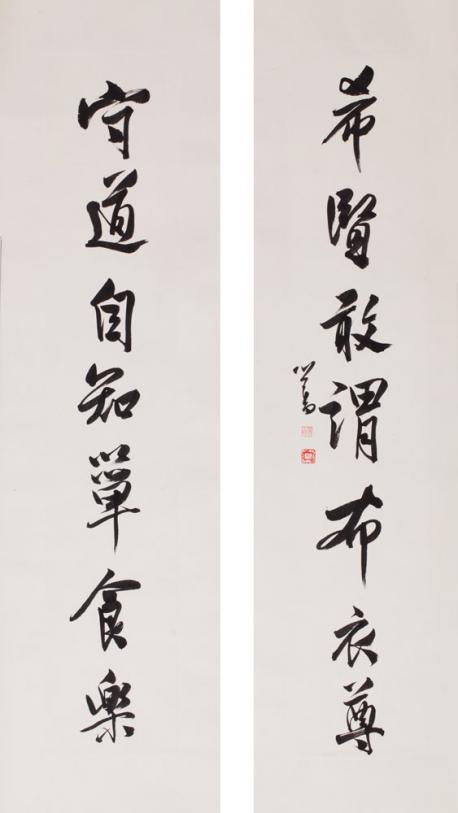 希賢敢謂布衣尊
心畬
守道自知簞食樂